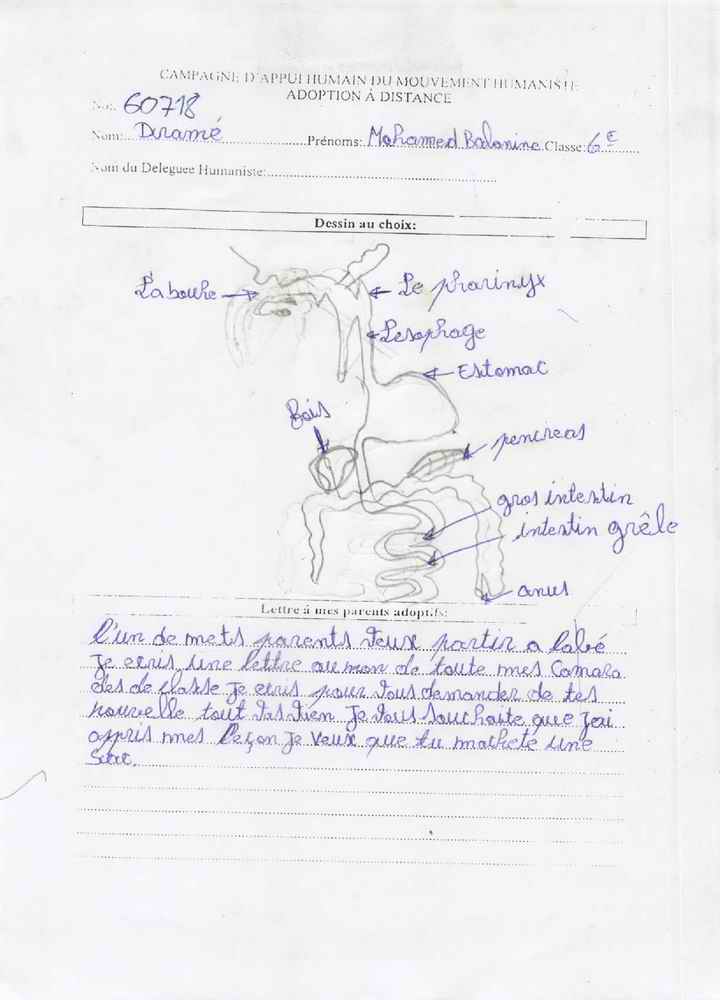 CAMPAGNE D'APPUI HUMAIN DU MOUVEMENT HUMANISTE
ADOPTION À DISTANCE
No: 60718
Nom: Diramé Prénoms: Mohamed Balamine Classe: 6e
Nom du Deleguee Humaniste:
Dessin au choix:
La bouhe
Le pharinyx
Lesophage
Estomac
Bois
pencreas
gros intestin
intestin grêle
anus
Lettre à mes parents adoptifs:
l'un de mets parents veux partir a labé
Je ecris une lettre au mon de toute mes camara
des de classe Je ecris pour vous demander de tes
nouvelle tout vas vien Je vous souchaite que j'ai
appris mes leçon Je veux que tu machete une